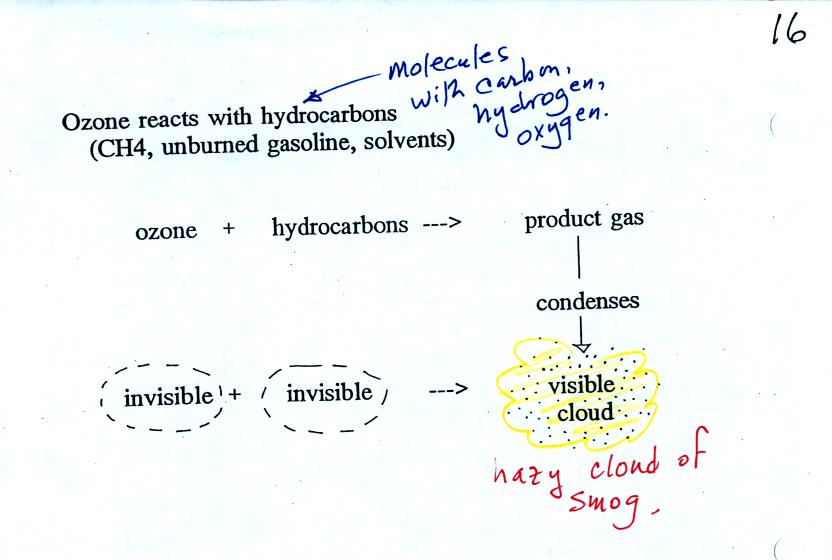 16
molecules
with carbon,
hydrogen,
oxygen.
Ozone reacts with hydrocarbons
(CH4, unburned gasoline, solvents)
ozone + hydrocarbons ---> product gas
condenses
invisible + invisible ---> visible
cloud
hazy cloud of
smog.